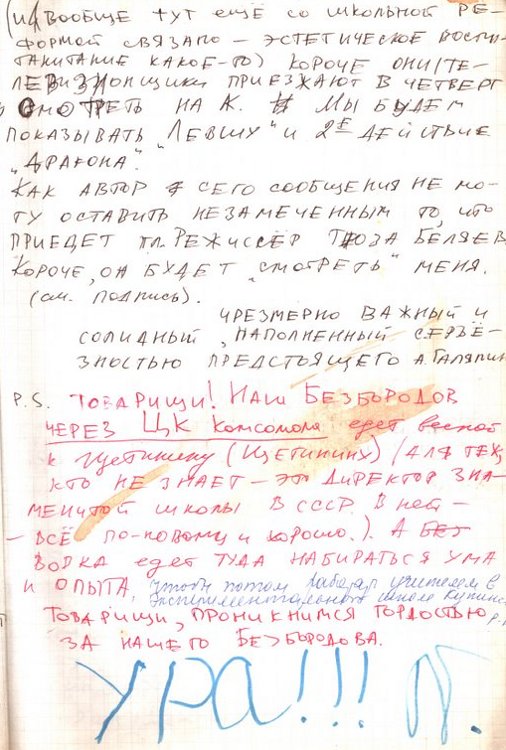 (И вообще тут ещё со школьной ре-
формой связано – эстетическое воспи-
такитание какое-то) короче они/те-
левизионщики приезжают в четверг
смотреть на К. Мы будем
показывать „Левшу" и 2е действие
„Дракона".
Как автор сего сообщения не мо-
гу оставить незамеченным то, что
приедет гл. режиссёр Беляев
Короче, он будет „смотреть" меня.
(см. подпись).
Чрезмерно важный и
солидный, наполненный серьё-
зностью предстоящего А. Галяпин
P.S. Товарищи! Наш Безбородов
через ЦК комсомола едет весной
к Щетинину (Щетинину) /для тех,
кто не знает – это директор зна-
менитой школы в СССР. В ней –
– всё по-новому и хорошо.). А
Вовка едет туда набираться ума
и опыта, чтобы потом учителем в
экспериментальной школе
Товарищи, проникнимся гордостью
за нашего Безбородова.
УРА!!!